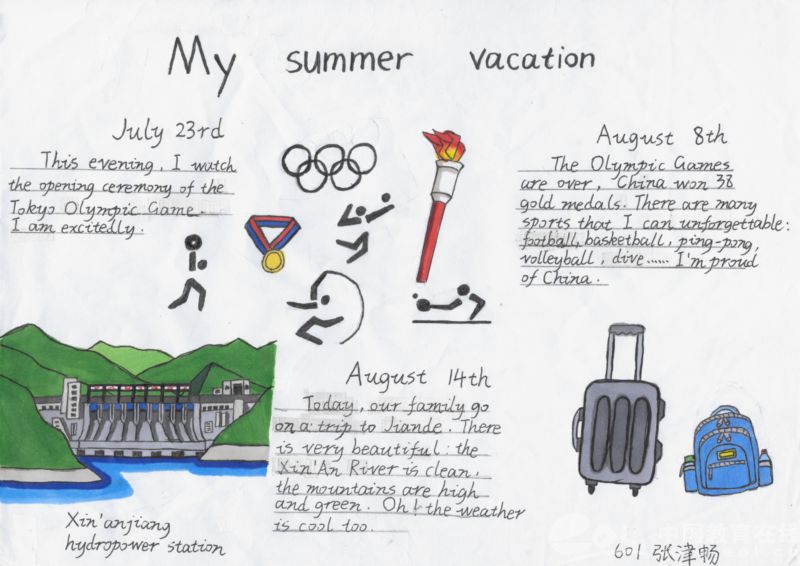 My summer vacation
July 23rd
This evening, I watch
the opening ceremony of the
Tokyo Olympic Game.
I am excitedly.
August 8th
The Olympic Games
are over, China won 38
gold medals. There are many
sports that I can unforgettable:
football, basketball, ping-pong,
volleyball, dive...... I'm proud
of China.
August 14th
Today, our family go
on a trip to Jiande. There
is very beautiful: the
Xin'An River is clean,
the mountains are high
and green. Oh! the weather
is cool too.
Xin'anjiang
hydropower station
601 张津畅
中国教育在线